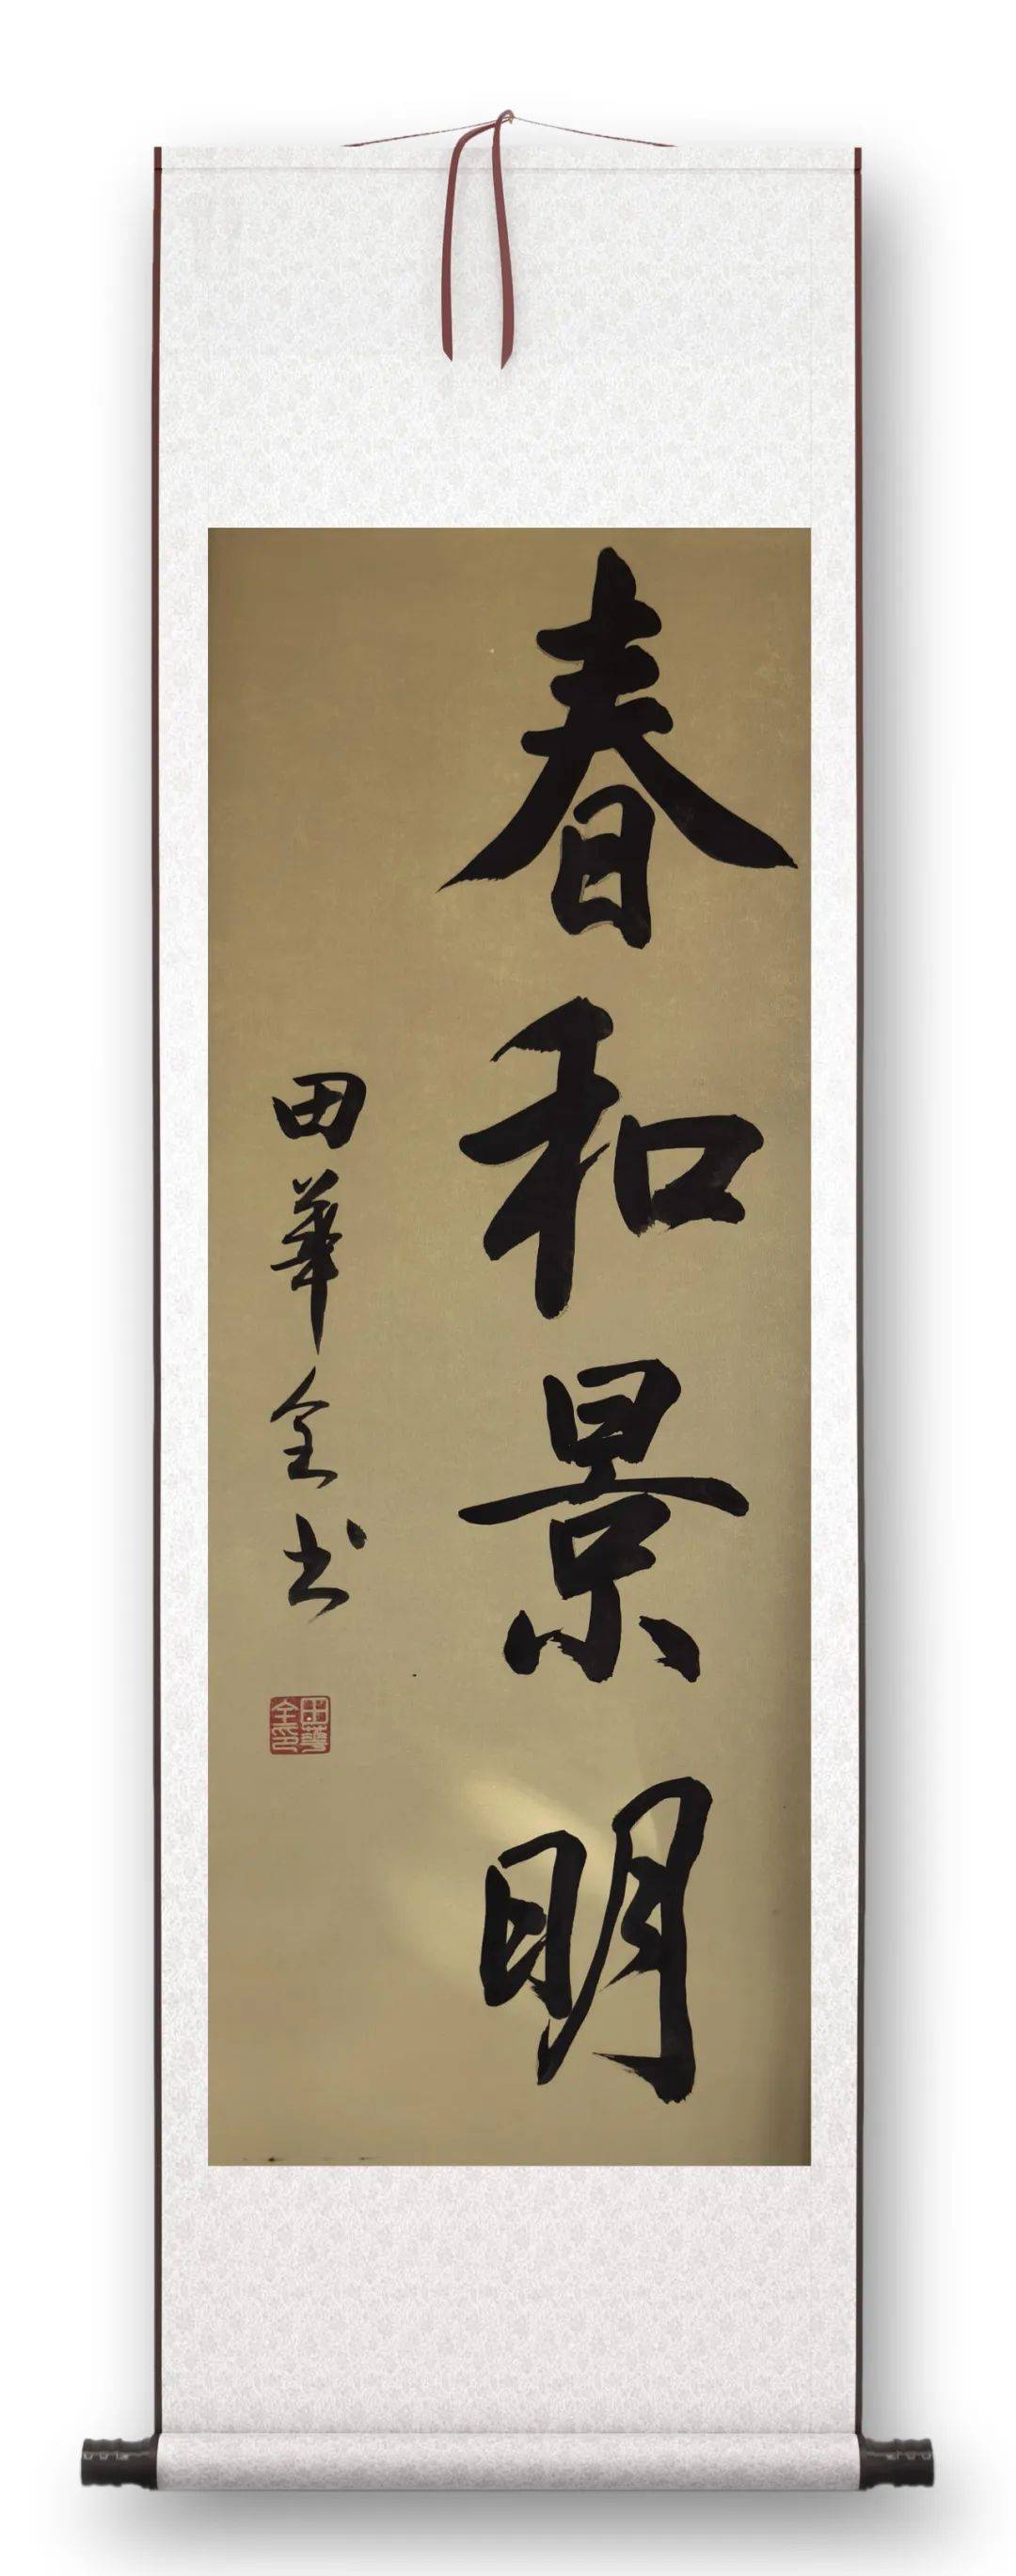 春和景明
田華全书
田華全印